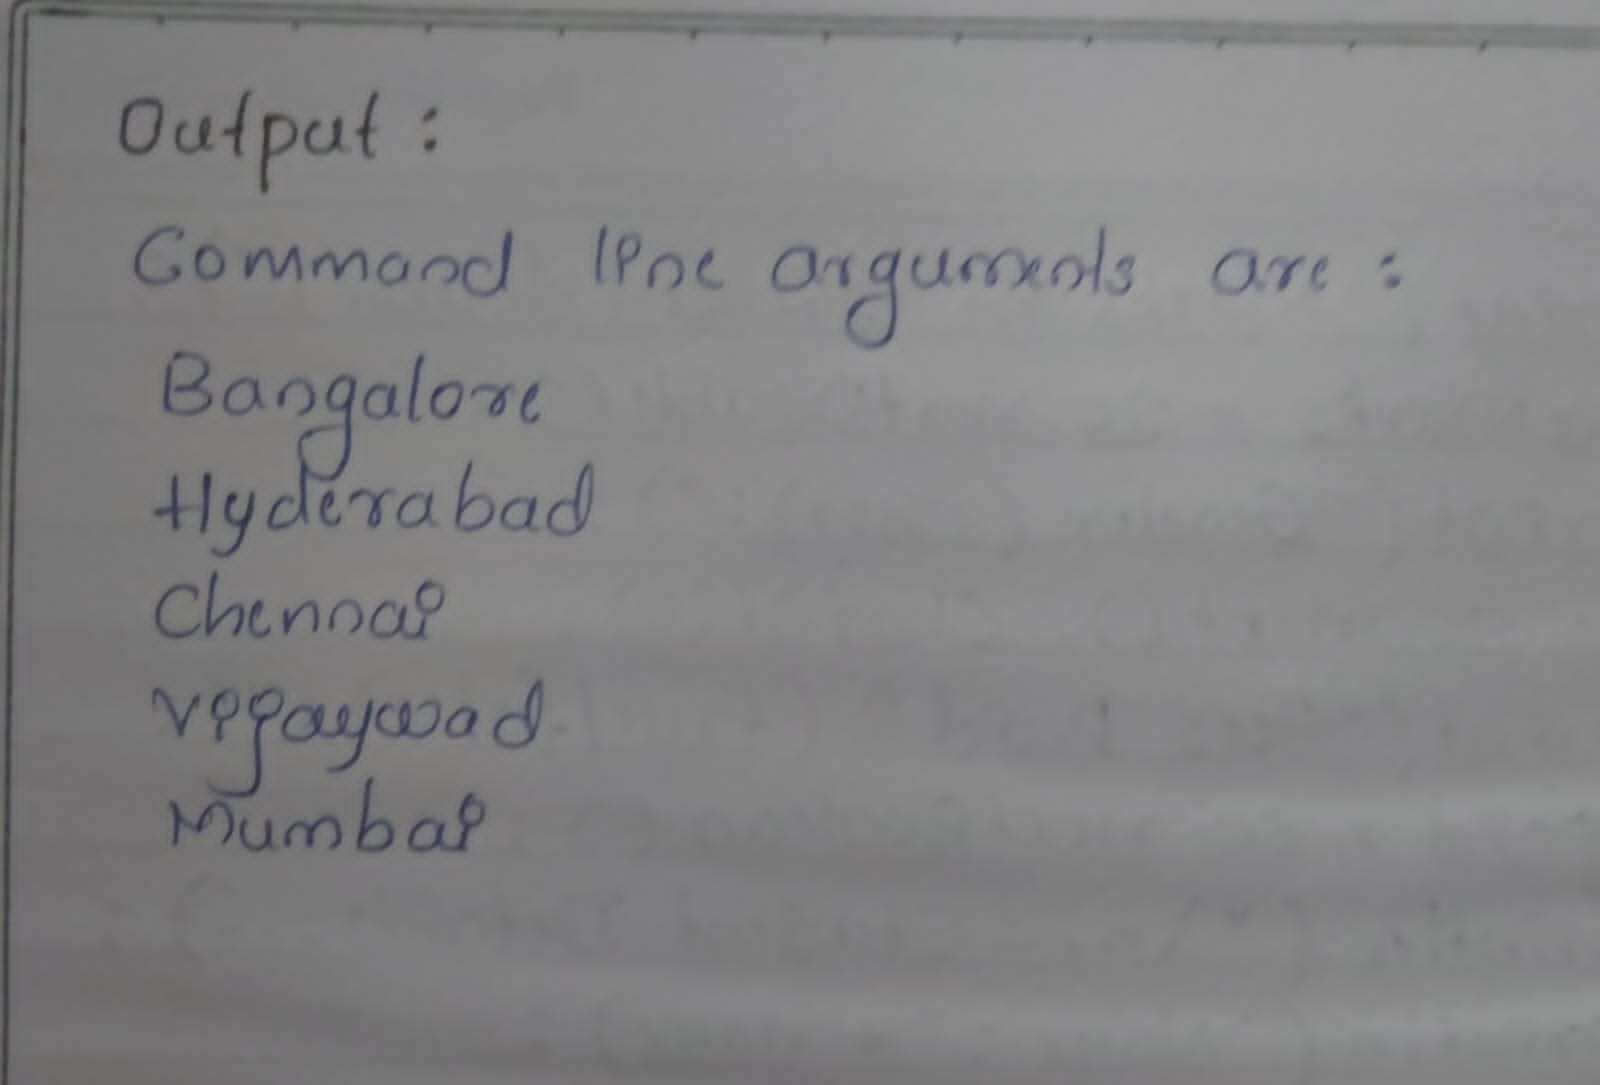 Output :
Command line arguments are :
Bangalore
Hyderabad
Chennai
Vijaywad
Mumbai